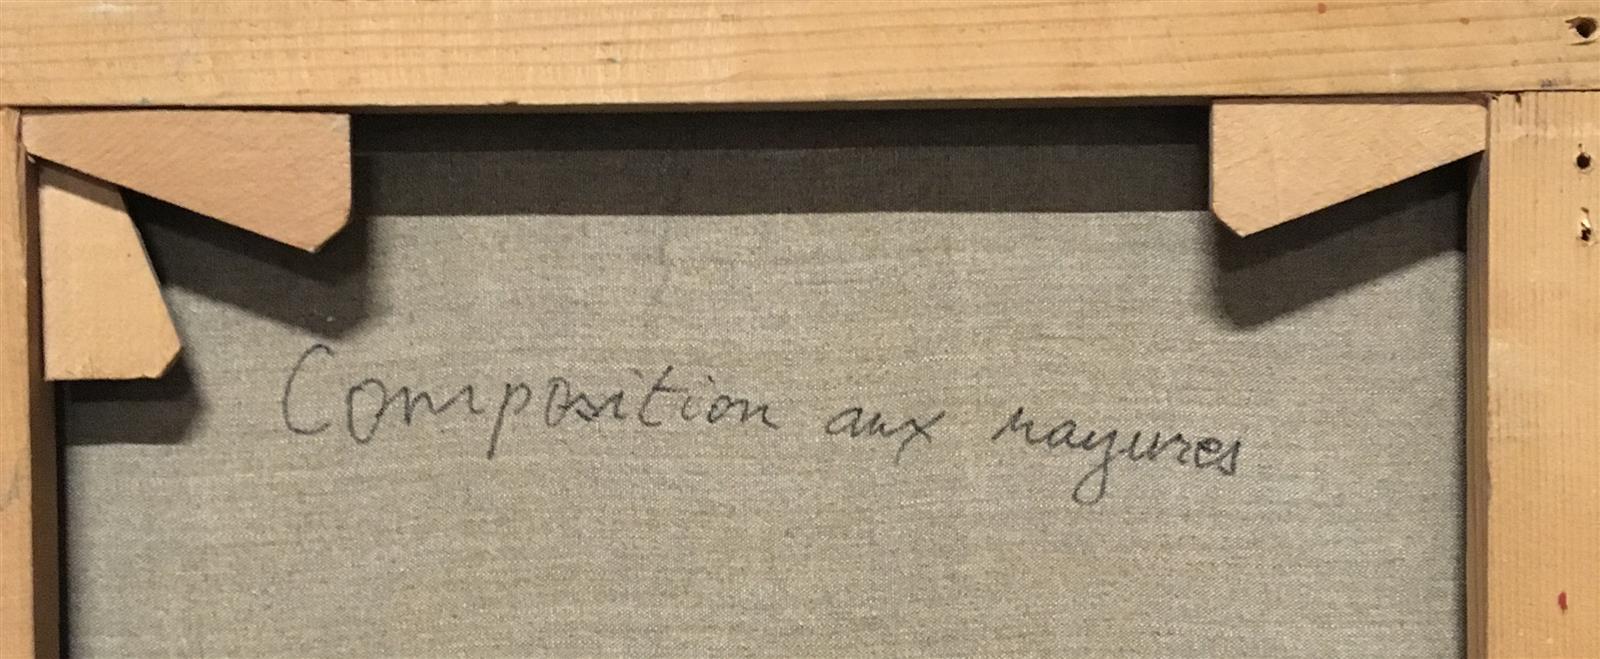 Composition aux rayures